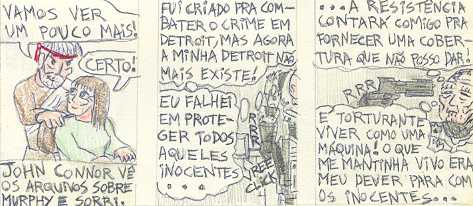 VAMOS VER
UM POUCO MAIS!
CERTO!
JOHN CONNOR VÊ
OS ARQUIVOS SOBRE
MURPHY E SORRI.
FUI CRIADO PRA COM-
BATER O CRIME EM
DETROIT, MAS AGORA
A MINHA DETROIT NÃO
MAIS EXISTE!
EU FALHEI
EM PROTE-
GER TODOS
AQUELES
INOCENTES
...
RRR
RRR
VREE
CLICK
...A RESISTÊNCIA
CONTARÁ COMIGO PRA
FORNECER UMA COBER-
TURA QUE NÃO POSSO DAR!
RRR
É TORTURANTE
VIVER COMO UMA
MÁQUINA! O QUE
ME MANTINHA VIVO ERA
MEU DEVER PARA COM
OS INOCENTES...